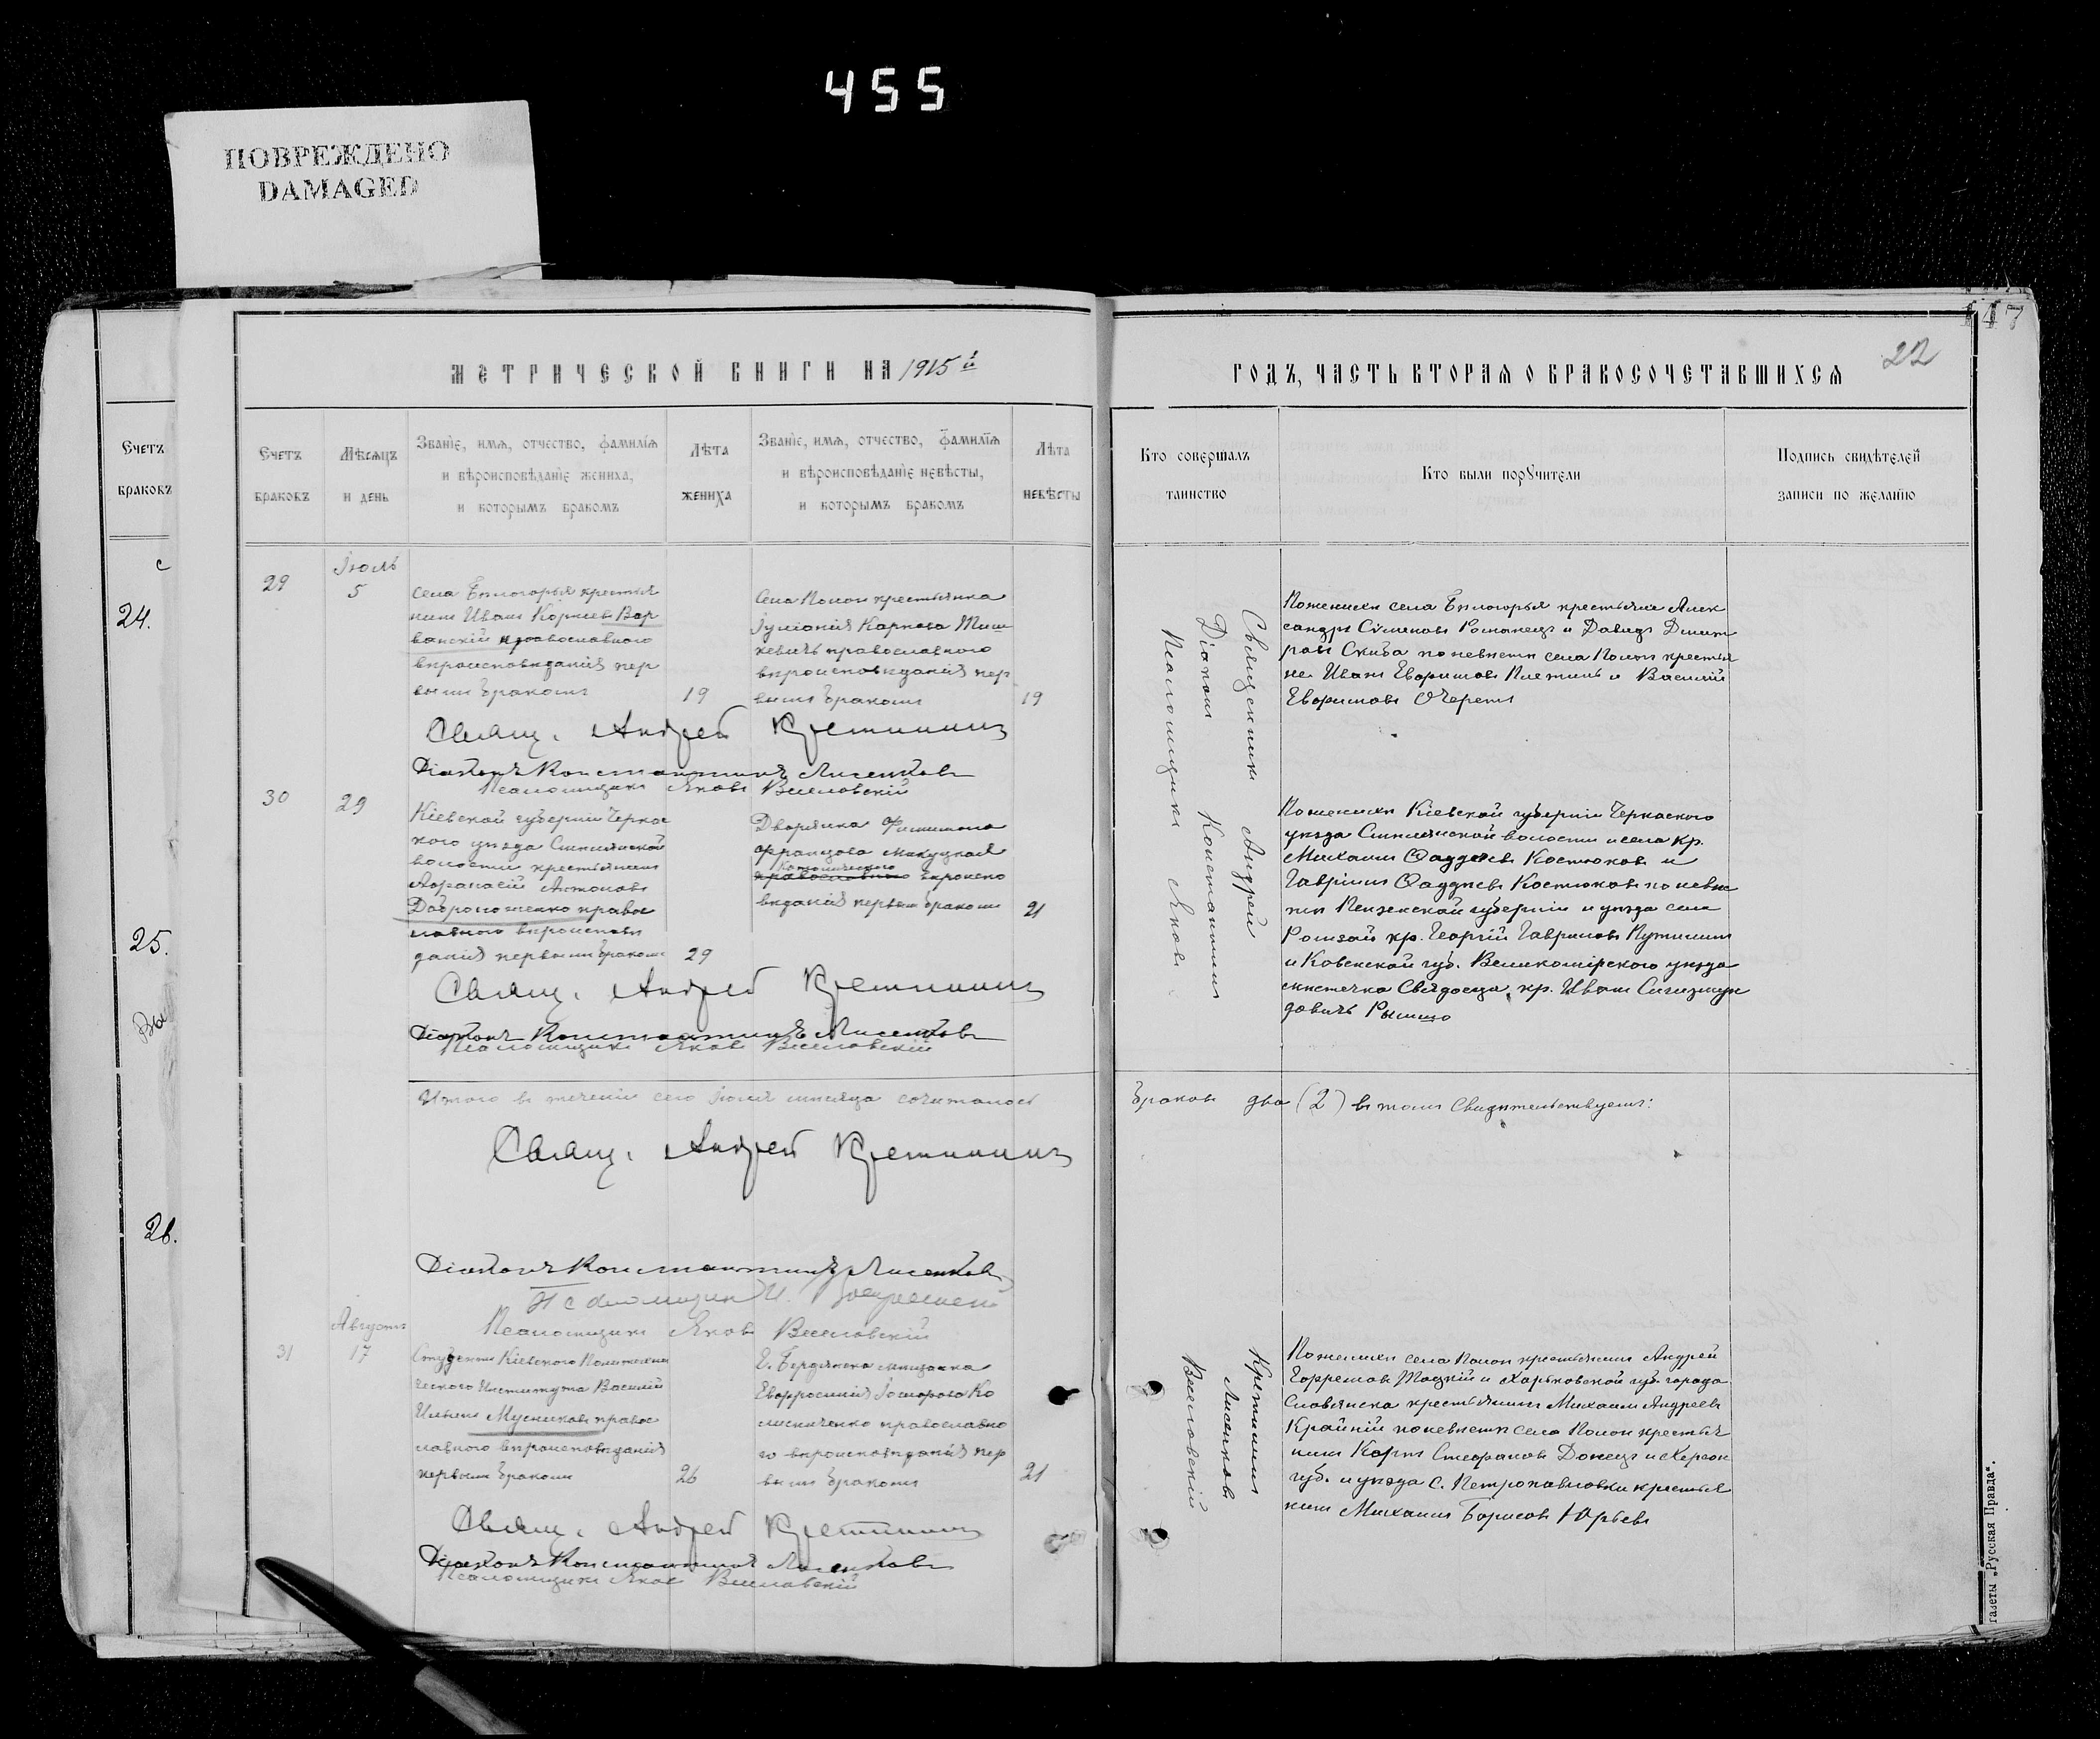 455
ПОВРЕЖДЕНО
DAMAGED
147
22
МЕТРИЧЕСКОЙ КНИГИ НА 1915й
ГОДЪ, ЧАСТЬ ВТОРАЯ О БРАКОСОЧЕТАВШИХСЯ
Счетъ
браковъ
24.
25.
Вы
26.
Счетъ
браковъ
Мѣсяцъ
и день
Званіе, имя, отчество, фамилія
и вѣроисповѣданіе жениха,
и которымъ бракомъ
Лѣта
жениха
Званіе, имя, отчество, фамилія
и вѣроисповѣданіе невѣсты,
и которымъ бракомъ
Лѣта
невѣсты
Кто совершалъ
таинство
Кто были поручители
Подпись свидѣтелей
записи по желанію
29
Іюль
5
села Бѣлогорья крестья
нинъ Иванъ Корнѣевъ Вар
ванскій православнаго
вѣроисповѣданія пер
вымъ бракомъ
19
Села Полон крестьянка
Іуліанія Карпова Тиш
кевичъ православнаго
вѣроисповѣданія пер
вымъ бракомъ
19
Священникъ Андрей
Діаконъ Константинъ
Псаломщикъ Яковъ
По женихѣ села Бѣлогорья крестьяне Алек
сандръ Сѵмеоновъ Романецъ и Давидъ Димит
ровъ Скиба по невѣстѣ села Полон крестья
не Иванъ Евфимовъ и Василій
Евфимовъ Очеретъ
Свящ. Андрей Кретининъ
Діаконъ Константинъ Лисенковъ
Псаломщикъ Яковъ Веселовскій
30
29
Кіевской губерніи Черкас
кого уѣзда Смѣлянской
волости крестьянинъ
Аѳанасій Антоновъ
Доброноженко правос
лавнаго вѣроисповѣ
данія первымъ бракомъ
29
Дворянка
Францова Микуцкая
Католическаго
православнаго вѣроиспо
вѣданія первымъ бракомъ
21
По женихѣ Кіевской губерніи Черкаского
уѣзда Смѣлянской волости и села кр.
Михаилъ Фаддѣевъ Костюковъ и
Гавріилъ Фаддѣевъ Костюковъ по невѣс
тѣ Пензенской губерніи и уѣзда села
Рамзай кр. Георгій Гавриловъ
и Ковенской губ. Вилкомірского уѣзда
мѣстечка кр. Иванъ Сигизмун
довичъ
Свящ. Андрей Кретининъ
Діаконъ Константинъ Лисенковъ
Псаломщикъ Яковъ Веселовскій
Итого въ теченіи сего Іюля мѣсяца сочиталось
браковъ два (2) въ томъ Свидѣтельствуемъ:
Свящ. Андрей Кретининъ
Діаконъ Константинъ Лисенковъ
Псаломщик И.
Псаломщикъ Яковъ Веселовскій
31
Августъ
17
Студентъ Кіевского Политехни
ческого Института Василій
Ильинъ Мусниковъ правос
лавнаго вѣроисповѣданія
первымъ бракомъ
26
Г. Бердянска мѣщанка
Евфросинія Ко
лисниченко православна
го вѣроисповѣданія пер
вымъ бракомъ
21
Кретининъ
Лисенковъ
Веселовскій
По женихѣ села Полон крестьянинъ Андрей
Ефремовъ и Харьковской губ. города
Славянска крестьянинъ Михаилъ Андреевъ
Крайній по невѣстѣ села Полон крестья
нинъ Карпъ Стефановъ Донецъ и Херсон
губ. и уѣзда с. Петропавловки крестья
нинъ Михаилъ Борисовъ Юрьевъ
Свящ. Андрей Кретининъ
Діаконъ Константинъ Лисенковъ
Псаломщикъ Яковъ Веселовскій
газеты „Русская Правда“.